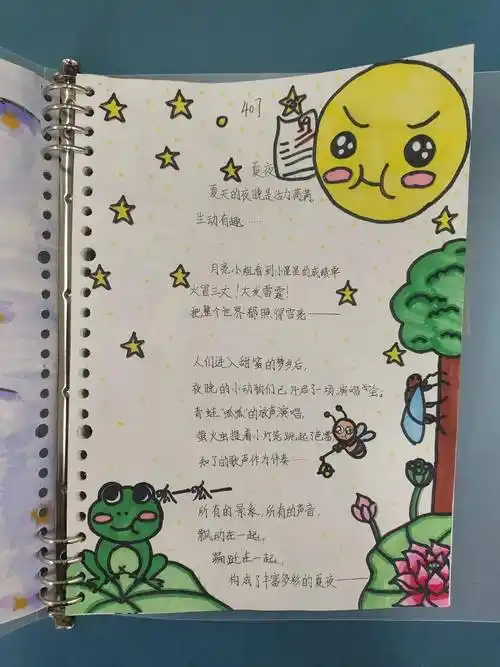 407
夏夜
夏天的夜晚是活力满满
生动有趣……
月亮小姐看到小星星的成绩单
火冒三丈！大发雷霆！
把整个世界都照得雪亮——
人们进入甜蜜的梦乡后，
夜晚的小动物们已开启了一场演唱会。
青蛙“呱呱”的放声演唱，
萤火虫提着小灯笼跳起了芭蕾
知了的歌声作为伴奏……
呱 呱
所有的景象，所有的声音，
飘动在一起，
蹦跶在一起，
构成了丰富多彩的夏夜——